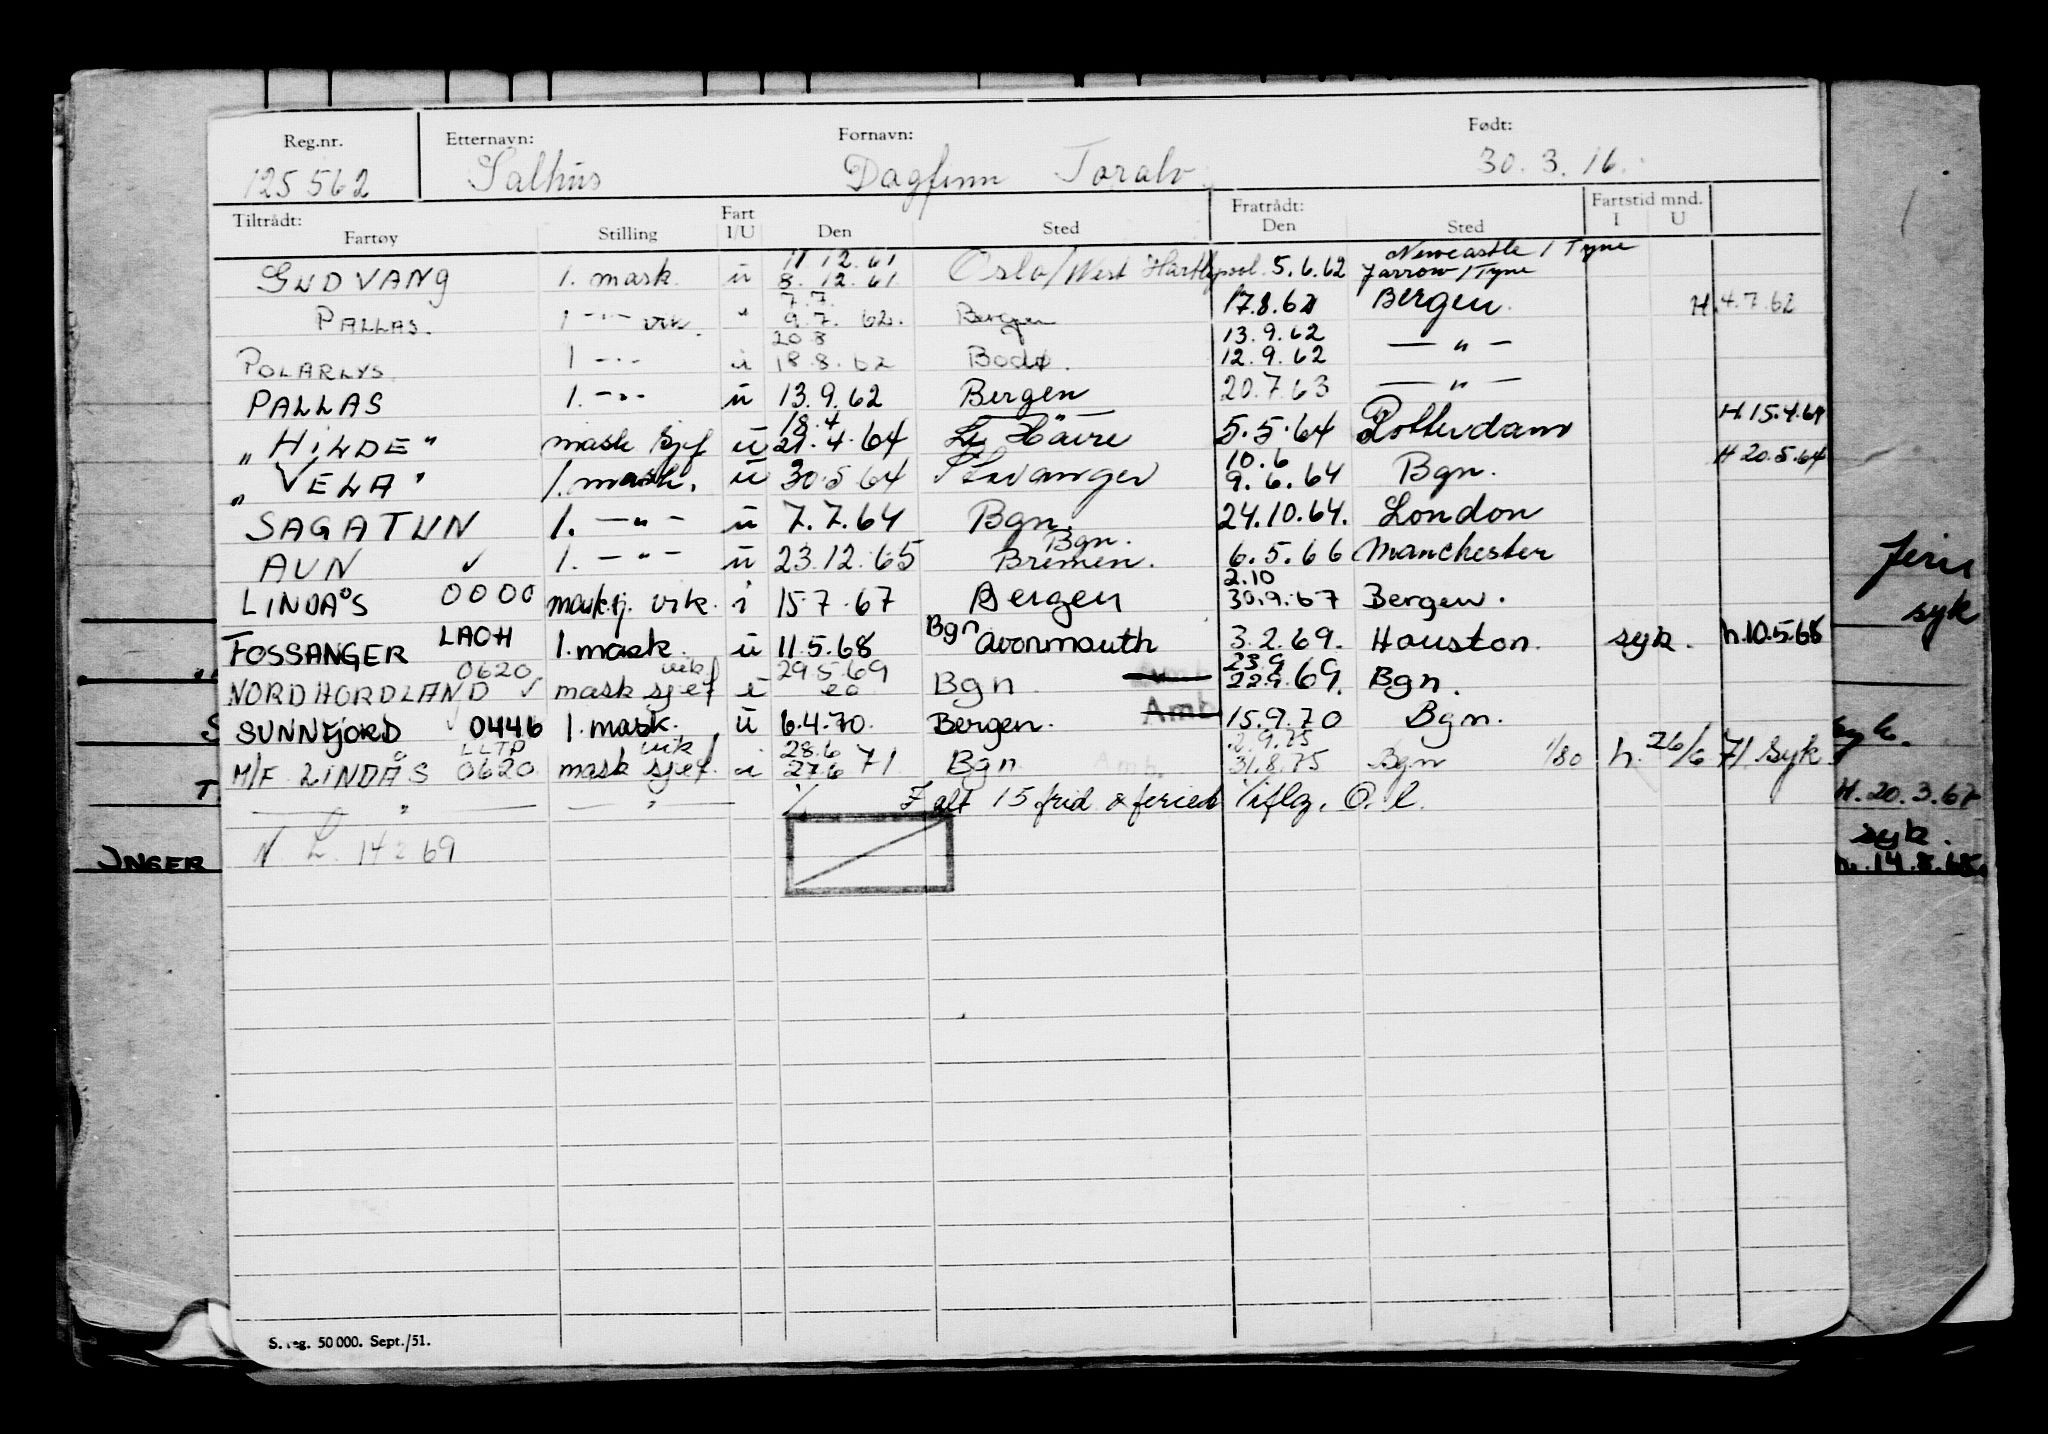 Reg.nr. Etternavn: Fornavn: Født:
125562 Salhus Dagfinn Toralv 30.3.16.
Tiltrådt: Fart Fratrådt: Fartstid mnd.
Fartøy Stilling I/U Den Sted Den Sted I U
11.12.61 Newcastle/Tyne
GUDVANG 1. mask. u 8.12.61 Oslo/West Hartlepool 5.6.62 Jarrow/Tyne
7.7.
PALLAS. 1 -"- vik. " 9.7.62. Bergen 17.8.62 Bergen. H.4.7.62
20.8 13.9.62
POLARLYS 1 -"- u 18.8.62 Bodø. 12.9.62 -"-
PALLAS 1. -"- u 13.9.62 Bergen 20.7.63 -"-
18.4
"HILDE" mask sjef u 21.4.64 Le Havre 5.5.64 Rotterdam H.15.4.64
10.6
"VELA" 1. mask. u 30.5.64 Stavanger 9.6.64 Bgn. H 20.5.64
SAGATUN 1. -"- u 7.7.64 Bgn. 24.10.64. London
Bgn.
AUN ✓ 1. -"- u 23.12.65 Bremen. 6.5.66 Manchester
2.10
LINDÅS 0000 mask.sj. vik. i 15.7.67 Bergen 30.9.67 Bergen.
FOSSANGER LAOH 1. mask. u 11.5.68 Bgn Avonmouth 3.2.69. Houston. syk. h.10.5.68
0620 vik 29.5.69 23.9
NORDHORDLAND ✓ mask sjef i eo Bgn 22.9.69. Bgn.
SUNNFJORD 0446 1. mask. u 6.4.70. Bergen. Amb 15.9.70 Bgn.
LLTP vik 28.6 2.9.75
M/F LINDÅS 0620 mask sjef. i 27.6 71 Bgn Amb. 31.8.75 Bgn 1/80 h. 26/6 71 Syk
-"- -"- I alt 15 frid & feried
N. L. 14 2 69
S. reg. 50 000. Sept./51.
INGER
syk
syk.
H. 20.3.67
syk.
h. 14.8.68.